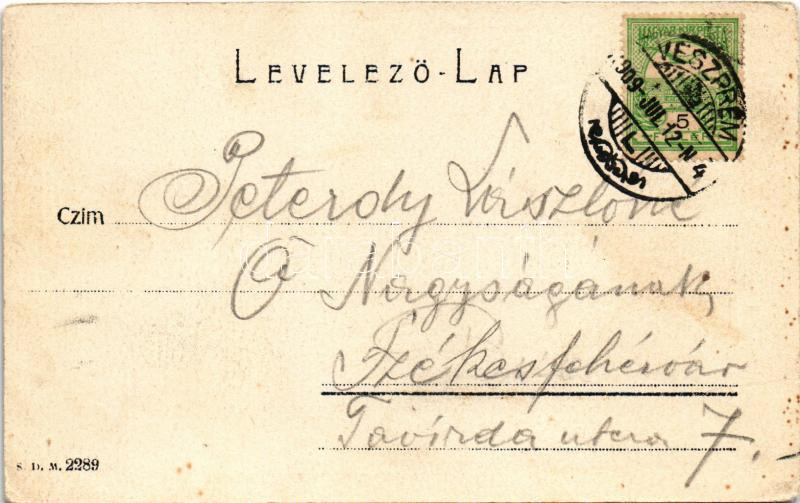 LEVELEZŐ-LAP
MAGYAR KIR. POSTA
VESZPRÉM
909 JUL. 12-N 4
5
Peterdy Lászlóné
Czim
Ő Nagyságának,
Székesfehérvár
Távirda utcza 7.-
S. D. M. 2289